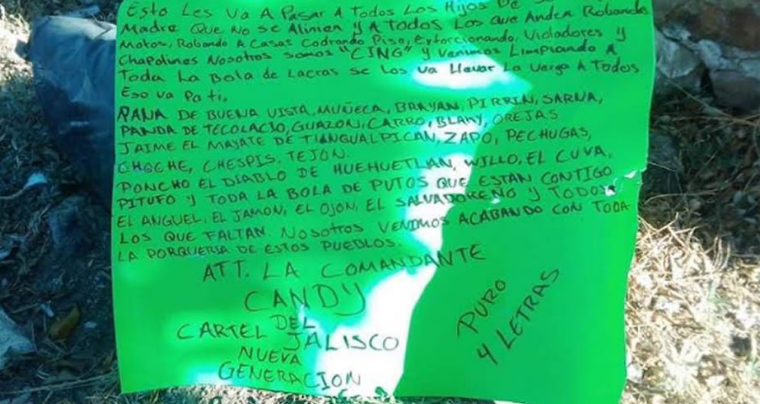 Esto Les Va A Pasar A Todos Los Hijos De Su
Madre Que No Se Alinien Y A Todos Los Que Anden Robando
Motos, Robando A Casas Codrando Piso, Extorcionando, Violadores Y
Chapolines Nosotros Somos "CJNG" Y Venimos Limpiando A
Toda La Bola De Lacras Se Los Va Llevar La Verga A Todos
Eso Va Pa Ti,
RANA DE BUENA VISTA, MUÑECA, BRAYAN, PIRRIN, SARNA,
PANDA DE TECOLACIO, GUAZON, CARRO, BLAKY, OREJAS
JAIME EL MAYATE DE TLANGUALPICAN, ZAPO, PECHUGAS,
CHOCHE, CHESPIS, TEJON.
PONCHO EL DIABLO DE HUEHUETLAN, WILLO, EL CUVA,
PITUFO Y TODA LA BOLA DE PUTOS QUE ESTAN CONTIGO
EL ANGUEL, EL JAMON, EL OJON, EL SALVADOREÑO Y TODOS
LOS QUE FALTAN NOSOTROS VENIMOS ACABANDO CON TODA
LA PORQUERIA DE ESTOS PUEBLOS.
ATT. LA COMANDANTE
CANDY
DEL
CARTEL JALISCO
NUEVA
GENERACION
PURO
4 LETRAS